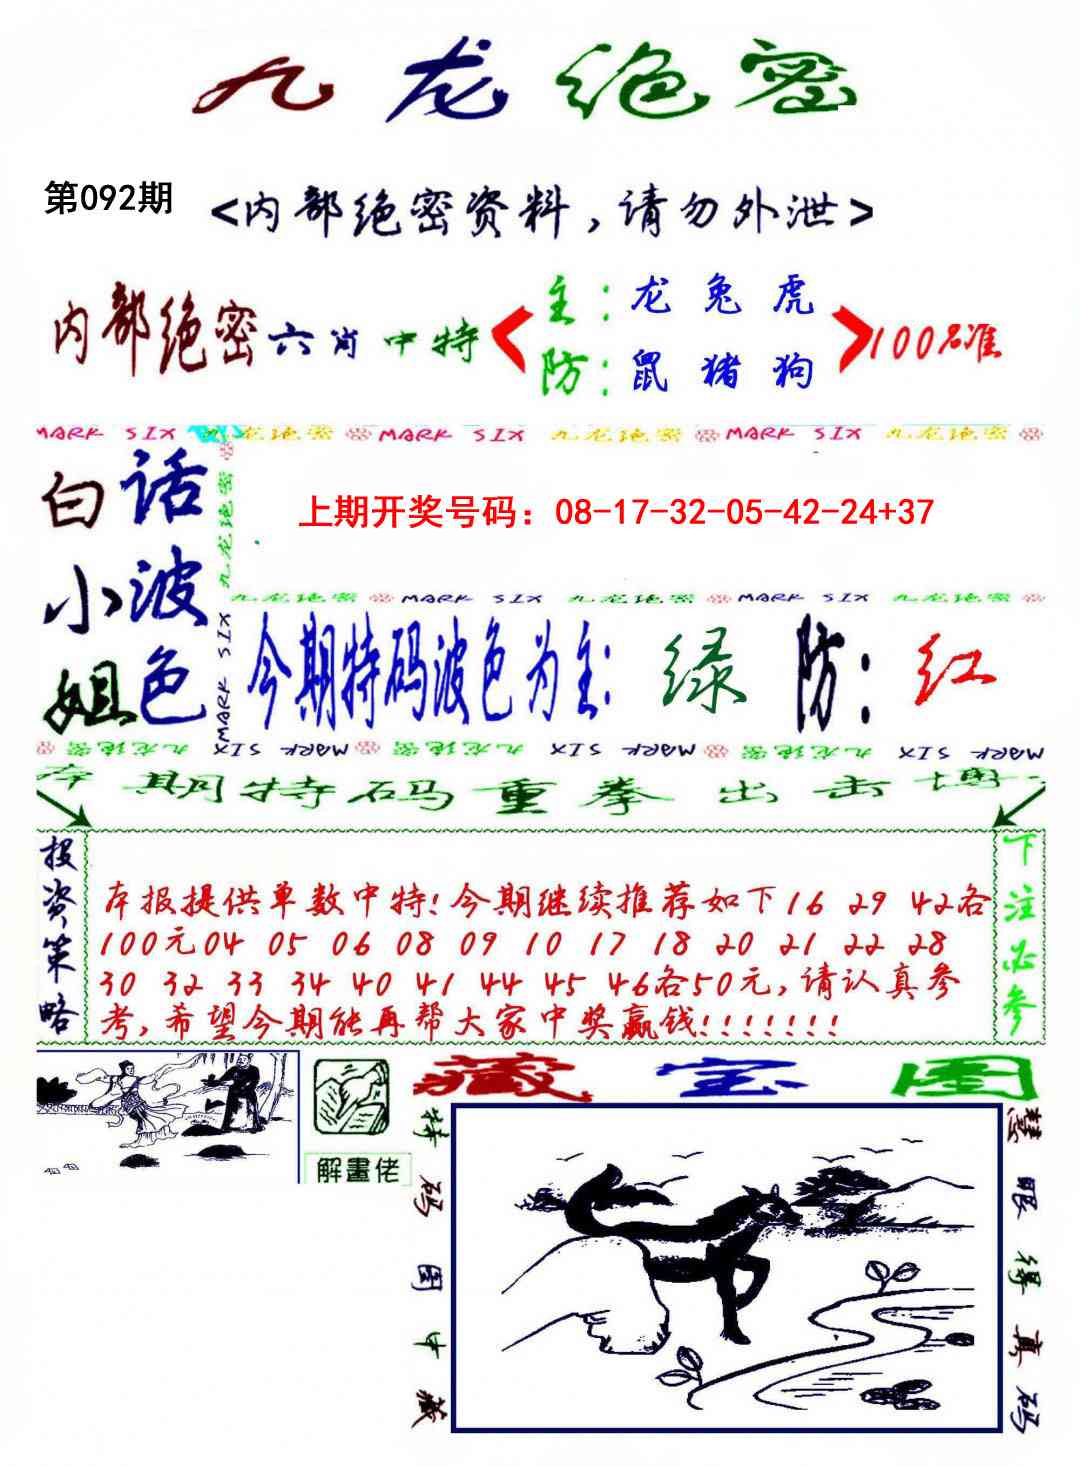 九龙绝密
第092期
<内部绝密资料,请勿外泄>
内部绝密六肖中特
主:龙 兔 虎
防:鼠 猪 狗
100%准
MARK SIX 九龙绝密 MARK SIX 九龙绝密 MARK SIX 九龙绝密
白小姐
话波色
九龙绝密
MARK SIX
上期开奖号码:08-17-32-05-42-24+37
九龙绝密 MARK SIX 九龙绝密 MARK SIX 九龙绝密
今期特码波色为主:绿 防:红
九龙绝密 MARK SIX 九龙绝密 MARK SIX 九龙绝密 MARK SIX
本期特码重拳出击博
投资策略
本报提供单数中特!今期继续推荐如下16 29 42各
100元04 05 06 08 09 10 17 18 20 21 22 28
30 32 33 34 40 41 44 45 46各50元,请认真参
考,希望今期能再帮大家中奖赢钱!!!!!!!
下注必参
解畫佬
藏宝图
特码图中藏
慧眼得真码